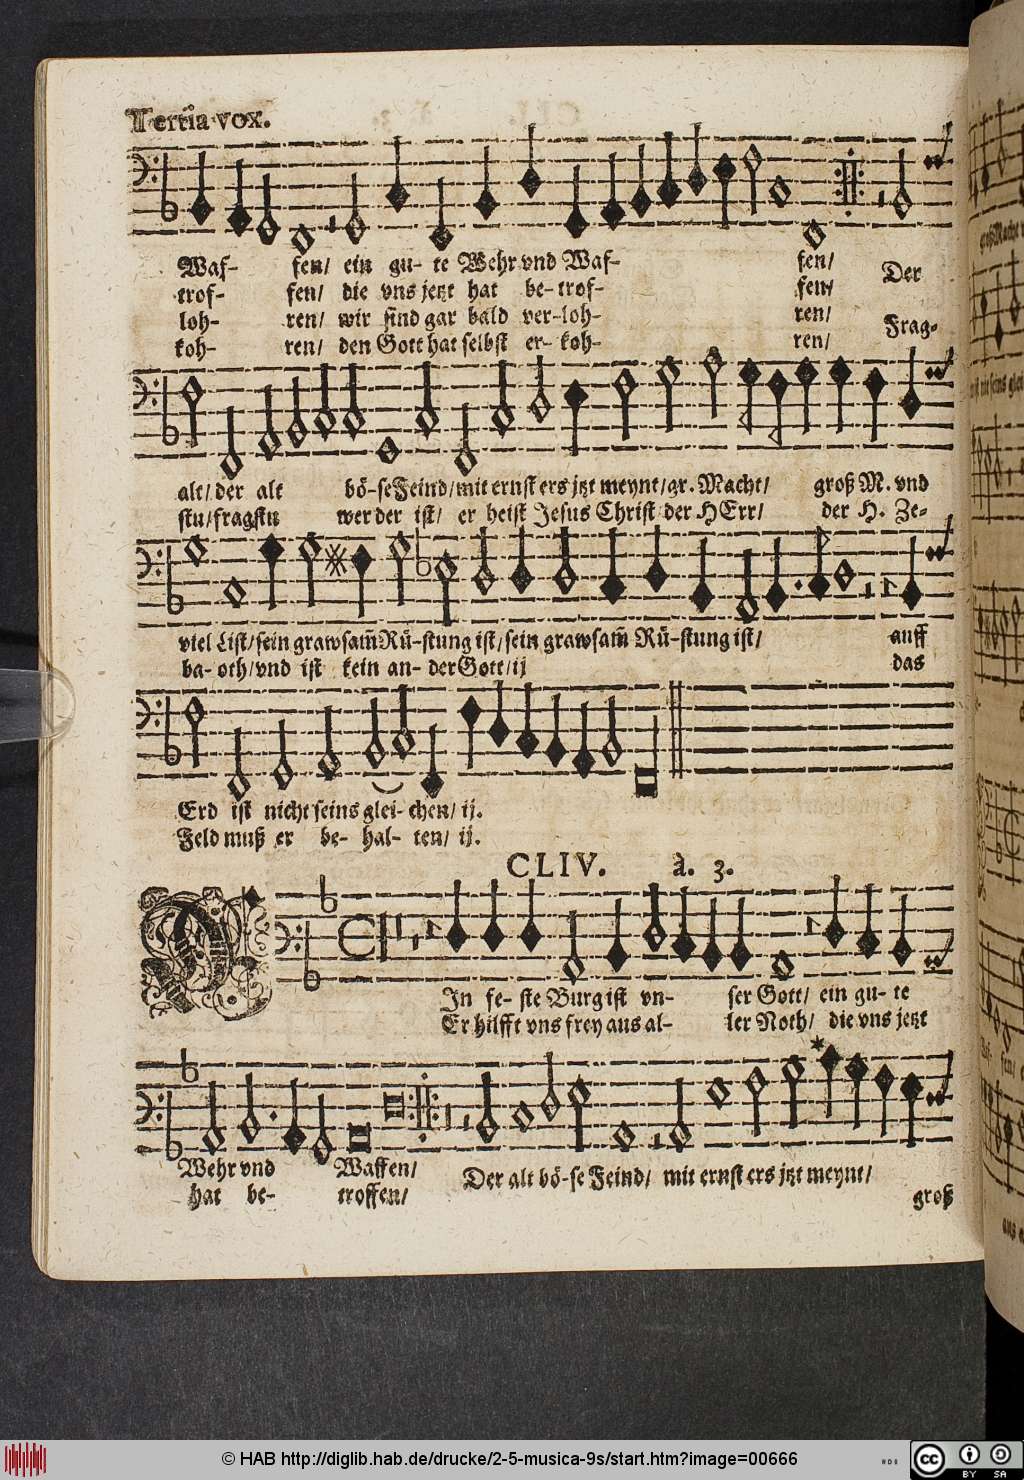 Tertia vox.
Waf- fen/ ein gu- te Wehr vnd Waf- fen/ Der
trof- fen/ die vns jetzt hat be- trof- fen/
loh- ren/ wir sind gar bald ver-loh- ren/ Frag-
koh- ren/ den Gott hat selbst er- koh- ren/
alt/ der alt bö-se Feind/ mit ernst ers jtzt meynt/ gr. Macht/ groß M. vnd
stu/ fragstu wer der ist/ er heist Jesus Christ der HErr/ der H. Ze-
viel List/ sein grawsam̄ Rü-stung ist/ sein grawsam̄ Rü-stung ist/ auff
ba- oth/ vnd ist kein an- der Gott/ ij das
Erd ist nicht seins glei- chen/ ij.
Feld muß er be- hal- ten/ ij.
CLIV. à. 3.
In fe- ste Burg ist vn- ser Gott/ ein gu- te
Er hilfft vns frey aus al- ler Noth/ die vns jetzt
Wehr vnd Waffen/ Der alt bö-se Feind/ mit ernst ers jtzt meynt/
hat be- troffen/ groß
© HAB http://diglib.hab.de/drucke/2-5-musica-9s/start.htm?image=00666
cc BY SA